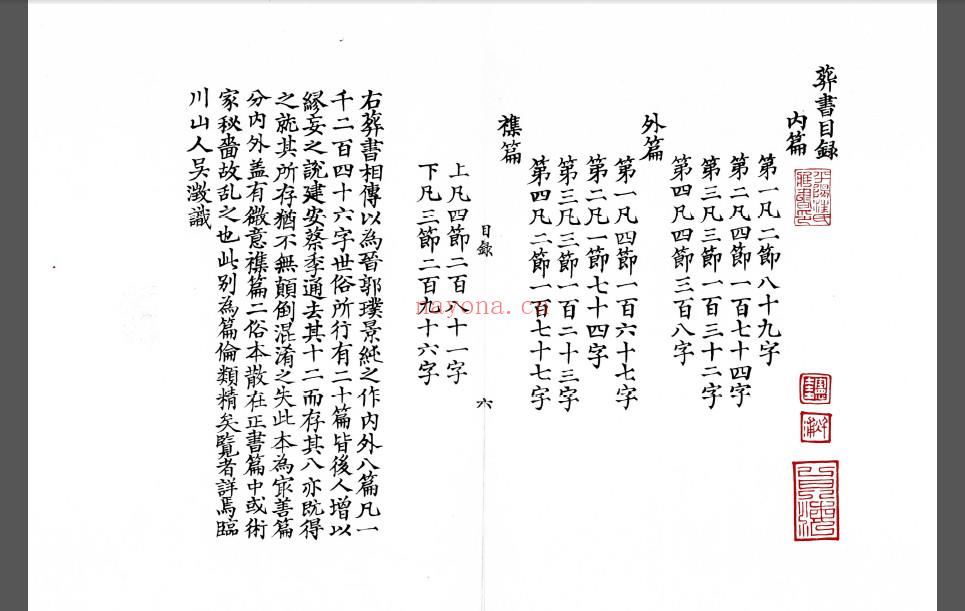 葬書目録
内篇
第一凡二節八十九字
第二凡四節一百七十四字
第三凡三節一百三十二字
第四凡四節三百八字
外篇
第一凡四節一百六十七字
第二凡一節七十四字
第三凡三節一百二十三字
第四凡二節一百七十七字
襍篇
目録
六
上凡四節二百八十一字
下凡三節二百九十六字
右葬書相傳以為晉郭璞景純之作内外八篇凡一
千二百四十六字世俗所行有二十篇皆後人增以
繆妄之說建安蔡季通去其十二而存其八亦既得
之然其所存猶不無顛倒混淆之失此本為㝡善篇
分内外盖有微意襍篇二俗本散在正書篇中或術
家秘嗇故乱之也此别為篇倫類精矣覽者詳焉臨
川山人吴澂識
nayona.cn